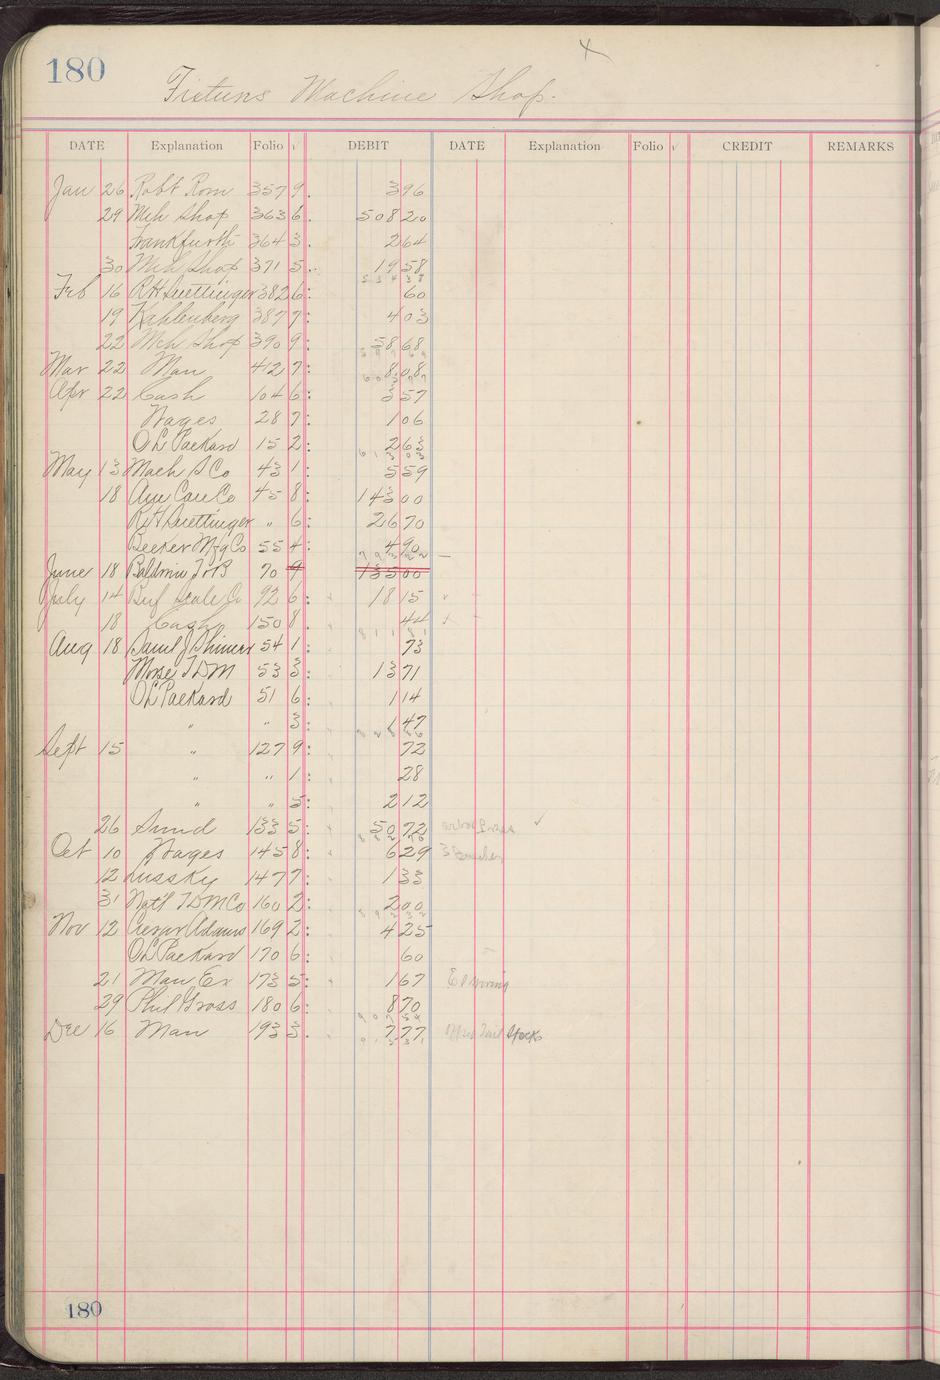 180
Fixtures Machine Shop.
DATE Explanation Folio DEBIT DATE Explanation Folio CREDIT REMARKS
Jan 26 Robt Rom 357 9. 396
29 Mch Shop 363 6. 508 20
Frankfurth 364 3. 264
30 Mch Shop 371 5. 19 58
534 38
Feb 16 R H Suettinger 382 6: 60
19 Kahlenberg 387 7: 4 03
22 Mch Shop 390 9: 58 68
Mar 22 Man 412 7: 8 08
Apr 22 Cash 104 6: 3 57
Wages 28 7: 1 06
O L Packard 15 2: 2 63
May 13 Mach S Co 43 1: 5 59
18 Am Car Co 45 8: 143 00
R H Suettinger " 6: 26 70
Becker Mfg Co 55 4: 4 90
June 18 Baldwin T & B 70 9 135 00
July 14 Buf Scale Co 92 6: 18 15
18 Cash 150 8. 44
811 81
Aug 18 Saml J Shimer 54 1: 73
Morse T D M 53 3: 13 71
O L Packard 51 6: 1 14
" " 3: 1 47
Sept 15 " 127 9: 72
" " 1: 28
" " 5: 2 12
26 Sund 133 5: 50 72
Oct 10 Wages 145 8: 6 29 3 Benches
12 Lussky 147 7: 1 33
31 Nat'l T D M Co 160 2: 2 00
Nov 12 Adams 169 2: 4 25
O L Packard 170 6: 60
21 Man Ex 173 5: 1 67
29 Phil Gross 180 6: 8 70
907 54
Dec 16 Man 193 3. 7 77 Tail Stocks
915 31
180